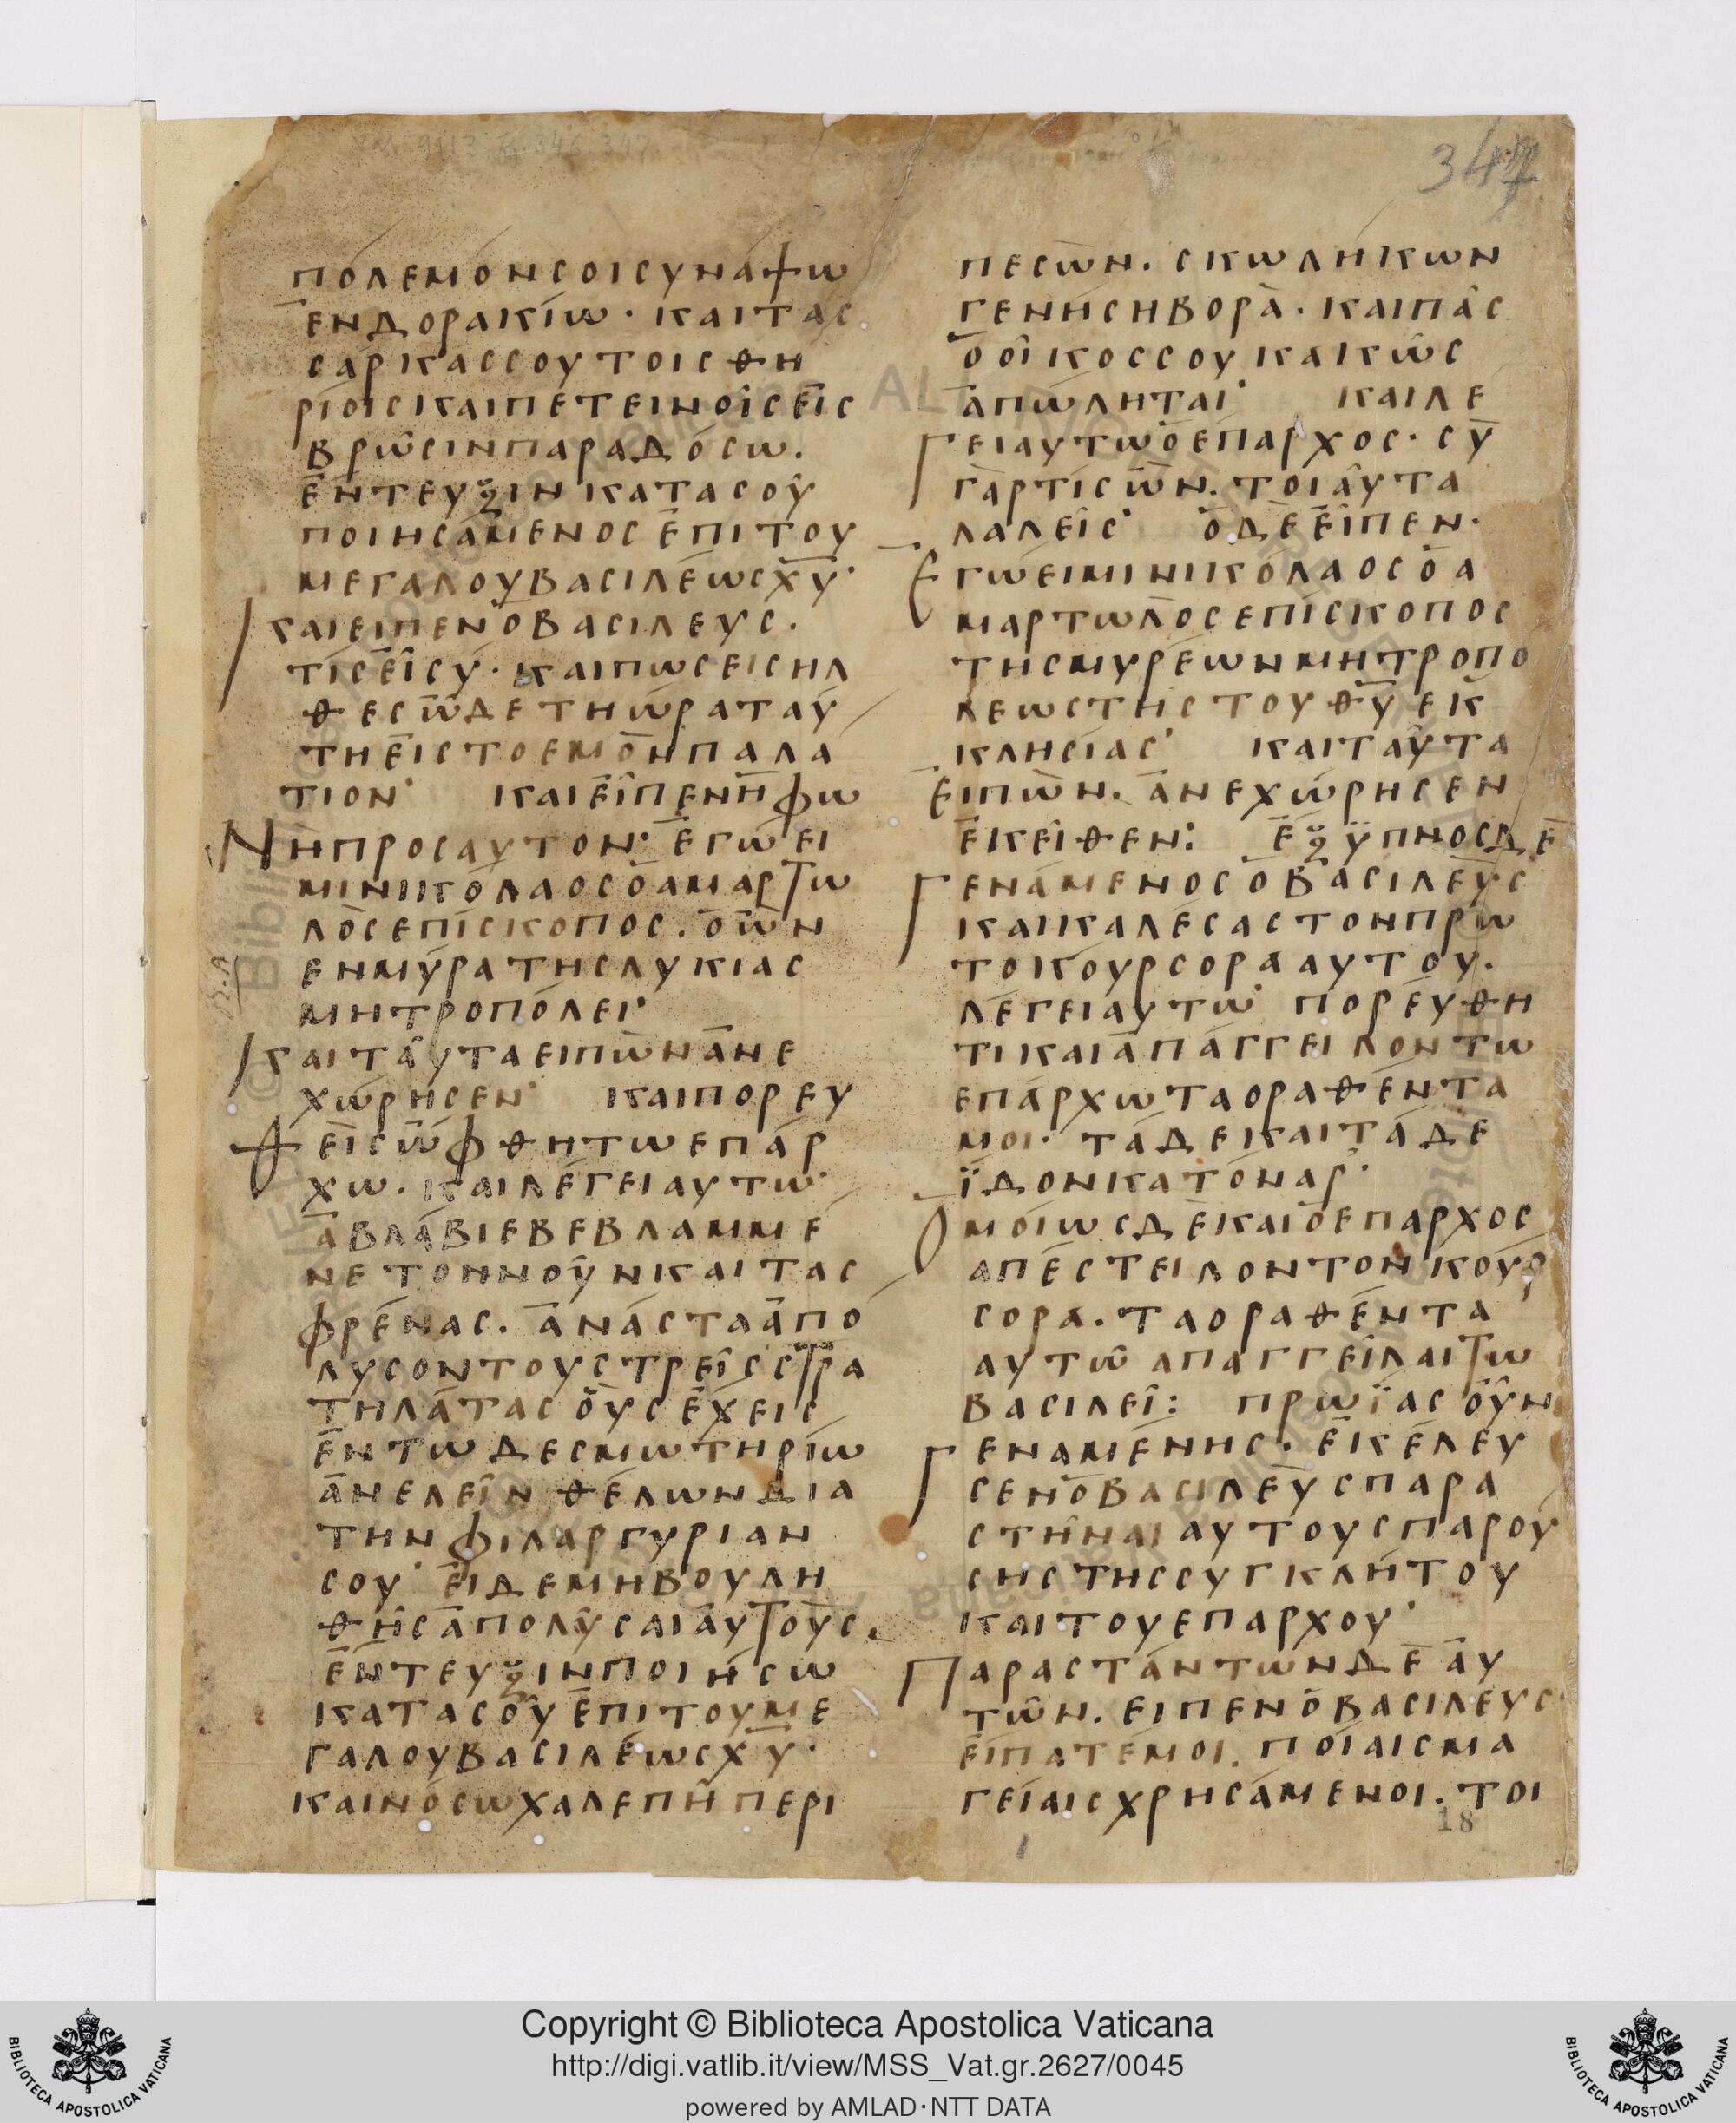 347
πόλεμόν σοι συνάψω
ἐν Δορακίω · καὶ τὰς
σάρκας σου τοῖς θη
ρίοις καὶ πετεινοῖς εἰς
βρῶσιν παραδόσω.
ἔντευξιν κατὰ σοῦ
ποιησάμενος ἐπὶ τοῦ
μεγάλου βασιλέως χ̅υ̅·
καὶ εἶπεν ὁ βασιλεύς.
τίς εἶ σύ · καὶ πῶς εἰσῆλ
θες ὧδε τῆ ὥρα ταύ
τη εἰς τὸ ἐμὸν παλά
τιον· καὶ εἶπεν ἡ φω
νὴ πρὸς αὐτόν· ἐγώ εἰ
μι Νικόλαος ὁ ἁμαρτω
λὸς ἐπίσκοπος. ὁ ὢν
ἐν Μύρα τῆς Λυκίας
μητροπόλει·
καὶ ταῦτα εἰπὼν ἀνε
χώρησεν· καὶ πορευ
θεὶς ὤφθη τῶ ἐπάρ
χω. καὶ λέγει αὐτῶ·
ἀβλάβιε βεβλαμμέ
νε τὸν νοῦν καὶ τὰς
φρένας. ἀνάστα ἀπό
λυσον τοὺς τρεῖς στρα
τηλάτας οὓς ἔχεις
ἐν τῶ δεσμωτηρίω
ἀνελεῖν θέλων διὰ
τὴν φιλαργυρίαν
σου· εἰ δὲ μὴ βουλη
θῆς ἀπολῦσαι αὐτούς.
ἔντευξιν ποιήσω
κατὰ σοῦ ἐπὶ τοῦ με
γάλου βασιλέως χ̅υ̅·
καὶ νόσω χαλεπῆ περι
πεσὼν. σκωλήκων
γενήση βορὰ · καὶ πᾶς
ὁ οἶκός σου κακῶς
ἀπώληται· καὶ λέ
γει αὐτῶ ὁ ἔπαρχος · σὺ
γὰρ τίς ὢν. τοιαῦτα
λαλεῖς· ὁ δὲ εἶπεν·
ἐγώ εἰμι Νικόλαος ὁ ἁ
μαρτωλὸς ἐπίσκοπος
τῆς Μυρέων μητροπό
λεως τῆς τοῦ θ̅υ̅ ἐκ
κλησίας· καὶ ταῦτα
εἰπὼν. ἀνεχώρησεν
ἐκεῖθεν: ἔξϋπνος δὲ
γενάμενος ὁ βασιλεὺς
καὶ καλέσας τὸν πρω
τοκούρσορα αὐτοῦ.
λέγει αὐτῶ· πορεύθη
τι καὶ ἀπάγγειλον τῶ
ἐπάρχω τὰ ὁραθέντα
μοι· τάδε καὶ τάδε
ἴδον κατόναρ·
ὁμοίως δὲ καὶ ὁ ἔπαρχος
ἀπέστειλον τὸν κούρ
σορα. τὰ ὁραθέντα
αὐτῶ ἀπαγγεῖλαι τῶ
βασιλεῖ: πρωΐας οὖν
γεναμένης · ἐκέλευ
σεν ὁ βασιλεὺς παρα
στῆναι αὐτοὺς παρού
σης τῆς συγκλήτου
καὶ τοῦ ἐπάρχου·
Παραστάντων δὲ αὐ
τῶν. εἶπεν ὁ βασιλεύς·
εἴπατέ μοι. ποίαις μα
γείαις χρησάμενοι. τοι
18
Copyright © Biblioteca Apostolica Vaticana
http://digi.vatlib.it/view/MSS_Vat.gr.2627/0045
powered by AMLAD·NTT DATA
BIBLIOTECA APOSTOLICA VATICANA
BIBLIOTECA APOSTOLICA VATICANA